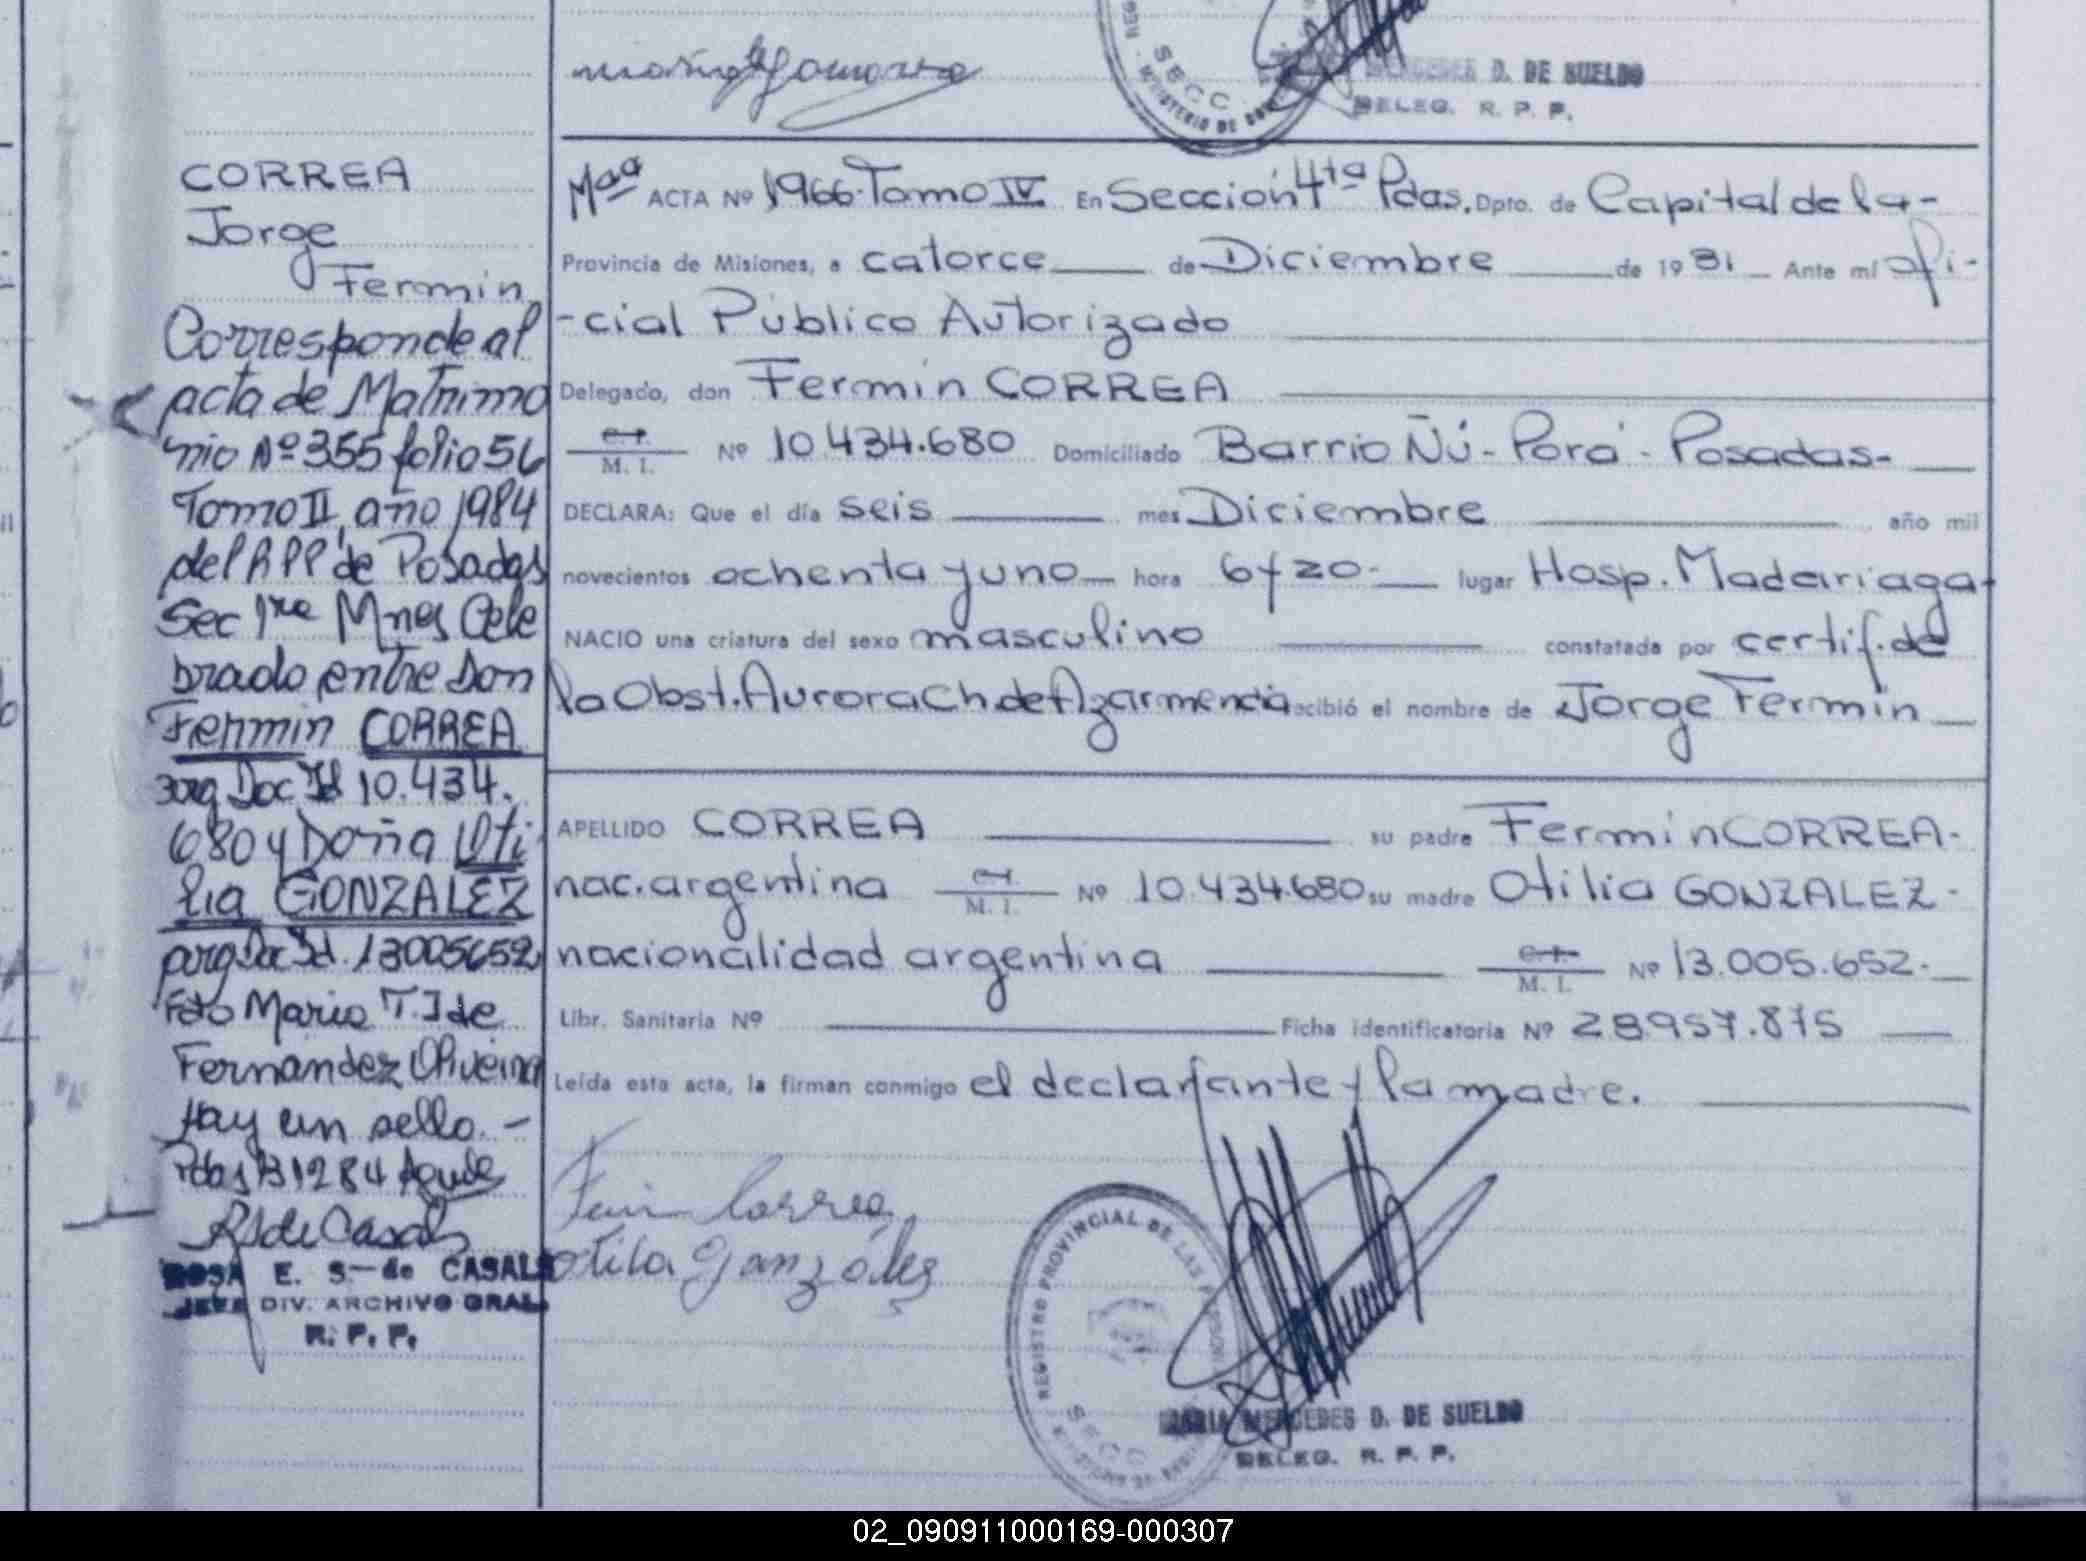 MERCEDES D. DE SUELDO
DELEG. R. P. P.
CORREA
Jorge
Fermin
Corresponde al
acta de Matrimo
nio Nº 355 folio 56
Tomo II, año 1984
del RPP de Posadas
Sec 1ra Mnes Cele
brado entre Don
Fermin CORREA
arg Doc Id 10.434.
680 y Doña Oti
lia GONZALEZ
arg Doc Id. 13005652
Fdo Maria T. I de
Fernandez Oliveira
Hay un sello.-
Pdas 13 12 84
RS de Casals
ROSA E. S. de CASALS
JEFE DIV. ARCHIVO GRAL.
R. P. P.
ACTA Nº 1966 Tomo IV En Sección 4ta Pdas. Dpto. de Capital de la-
Provincia de Misiones, a catorce de Diciembre de 1981 Ante mí Ofi-
-cial Público Autorizado
Delegado, don Fermin CORREA
C.I. M. I. Nº 10.434.680 Domiciliado Barrio Ñú-Porá-Posadas-
DECLARA: Que el día seis mes Diciembre año mil
novecientos ochenta y uno hora 6 y 20- lugar Hosp. Madariaga-
NACIO una criatura del sexo masculino constatada por certif. de
la Obst. Aurora Ch. de Azarmendia recibió el nombre de Jorge Fermin
APELLIDO CORREA su padre Fermin CORREA-
nac. argentina C.I. M. I. Nº 10.434.680 su madre Otilia GONZALEZ-
nacionalidad argentina C.I. M. I. Nº 13.005.652-
Libr. Sanitaria Nº Ficha identificatoria Nº 28.957.875
Leída esta acta, la firman conmigo el declarante y la madre.
Fermin Correa
Otilia González
REGISTRO PROVINCIAL DE LAS PERSONAS
SECC
MARIA MERCEDES D. DE SUELDO
DELEG. R. P. P.
02_090911000169-000307